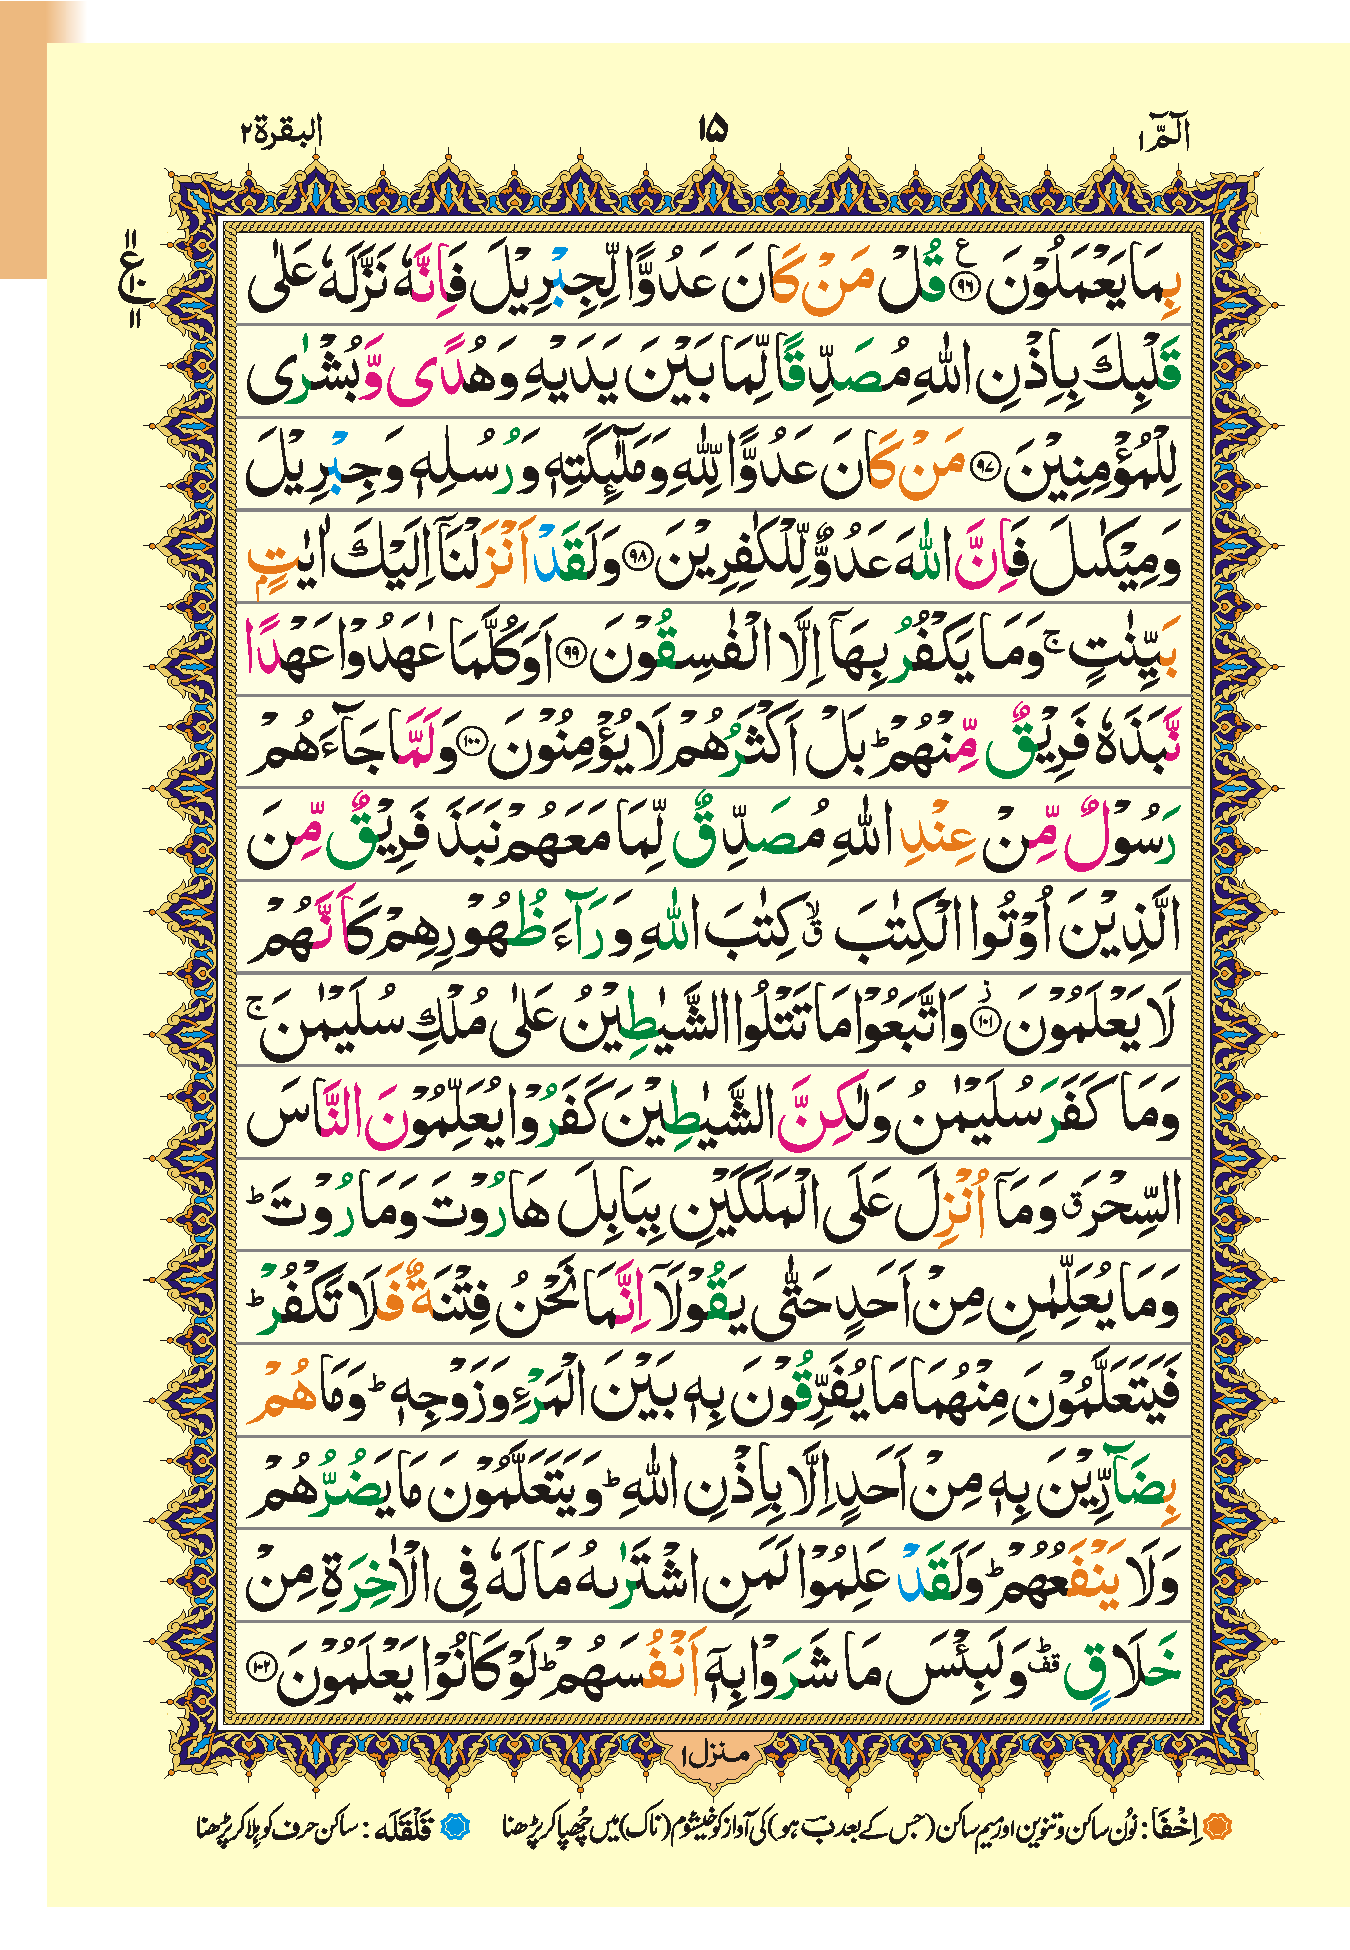 الٓمّٓ ۱
۱۵
البقرة ۲
بِمَا يَعْمَلُوْنَ ﴿۹۶﴾ قُلْ مَنْ كَانَ عَدُوًّا لِّجِبْرِيْلَ فَاِنَّهٗ نَزَّلَهٗ عَلٰى
ع
۱۱
۱۰
۱۱
قَلْبِكَ بِاِذْنِ اللّٰهِ مُصَدِّقًا لِّمَا بَيْنَ يَدَيْهِ وَهُدًى وَّبُشْرٰى
لِلْمُؤْمِنِيْنَ ﴿۹۷﴾ مَنْ كَانَ عَدُوًّا لِّلّٰهِ وَمَلٰٓئِكَتِهٖ وَرُسُلِهٖ وَجِبْرِيْلَ
وَمِيْكٰىلَ فَاِنَّ اللّٰهَ عَدُوٌّ لِّلْكٰفِرِيْنَ ﴿۹۸﴾ وَلَقَدْ اَنْزَلْنَاۤ اِلَيْكَ اٰيٰتٍۭ
بَيِّنٰتٍ ۚ وَمَا يَكْفُرُ بِهَاۤ اِلَّا الْفٰسِقُوْنَ ﴿۹۹﴾ اَوَكُلَّمَا عٰهَدُوْا عَهْدًا
نَّبَذَهٗ فَرِيْقٌ مِّنْهُمْ ؕ بَلْ اَكْثَرُهُمْ لَا يُؤْمِنُوْنَ ﴿۱۰۰﴾ وَلَمَّا جَآءَهُمْ
رَسُوْلٌ مِّنْ عِنْدِ اللّٰهِ مُصَدِّقٌ لِّمَا مَعَهُمْ نَبَذَ فَرِيْقٌ مِّنَ
الَّذِيْنَ اُوْتُوا الْكِتٰبَ ۙۗ كِتٰبَ اللّٰهِ وَرَآءَ ظُهُوْرِهِمْ كَاَنَّهُمْ
لَا يَعْلَمُوْنَ ﴿۱۰۱﴾ ز وَاتَّبَعُوْا مَا تَتْلُوا الشَّيٰطِيْنُ عَلٰى مُلْكِ سُلَيْمٰنَ ۚ
وَمَا كَفَرَ سُلَيْمٰنُ وَلٰكِنَّ الشَّيٰطِيْنَ كَفَرُوْا يُعَلِّمُوْنَ النَّاسَ
السِّحْرَ ق وَمَاۤ اُنْزِلَ عَلَى الْمَلَكَيْنِ بِبَابِلَ هَارُوْتَ وَمَارُوْتَ ؕ
وَمَا يُعَلِّمٰنِ مِنْ اَحَدٍ حَتّٰى يَقُوْلَاۤ اِنَّمَا نَحْنُ فِتْنَةٌ فَلَا تَكْفُرْ ؕ
فَيَتَعَلَّمُوْنَ مِنْهُمَا مَا يُفَرِّقُوْنَ بِهٖ بَيْنَ الْمَرْءِ وَزَوْجِهٖ ؕ وَمَا هُمْ
بِضَآرِّيْنَ بِهٖ مِنْ اَحَدٍ اِلَّا بِاِذْنِ اللّٰهِ ؕ وَيَتَعَلَّمُوْنَ مَا يَضُرُّهُمْ
وَلَا يَنْفَعُهُمْ ؕ وَلَقَدْ عَلِمُوْا لَمَنِ اشْتَرٰىهُ مَا لَهٗ فِى الْاٰخِرَةِ مِنْ
خَلَاقٍ ؕ قف وَلَبِئْسَ مَا شَرَوْا بِهٖۤ اَنْفُسَهُمْ ؕ لَوْ كَانُوْا يَعْلَمُوْنَ ﴿۱۰۲﴾
منزل ۱
اِخْفَا: نُون ساکن و تنوین اور میم ساکن (جس کے بعد ب ہو) کی آواز کو خیشوم (ناک) میں چُھپا کر پڑھنا قَلْقَلَه: ساکن حرف کو ہلا کر پڑھنا